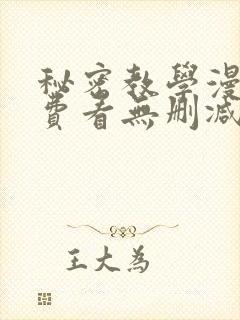 秘密教學漫
費看無刪減
王大為